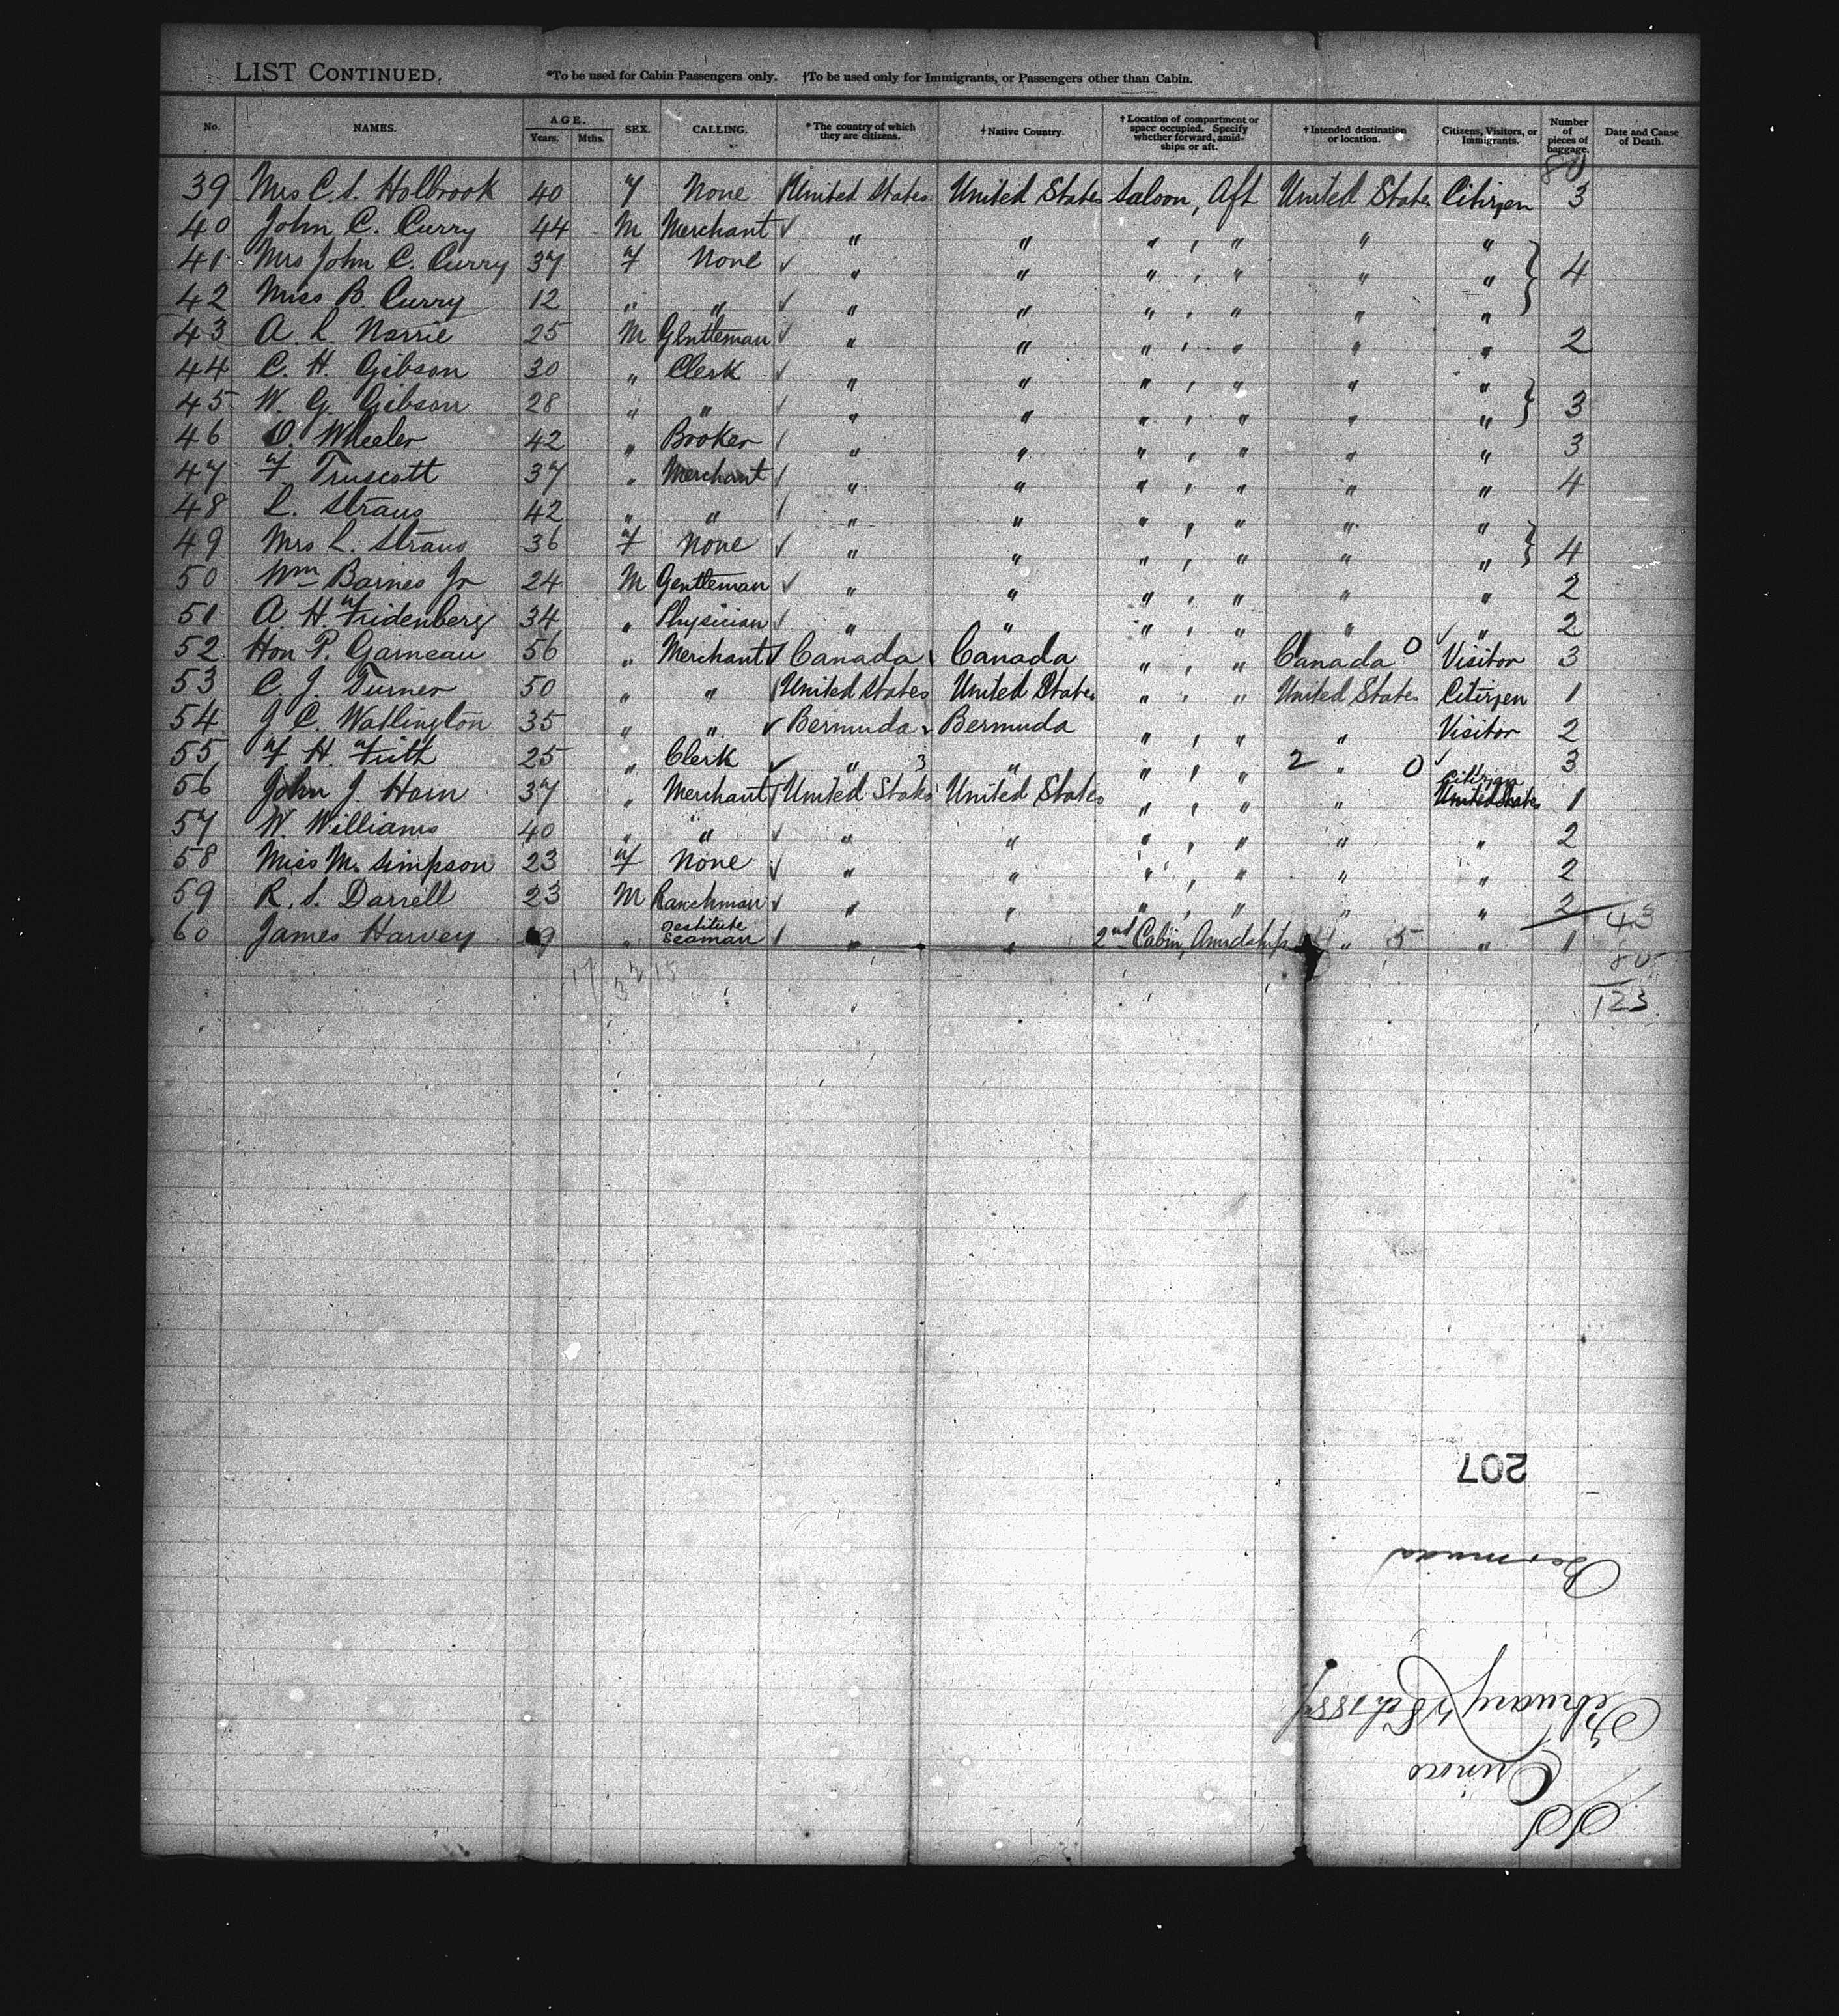 LIST CONTINUED. *To be used for Cabin Passengers only. †To be used only for Immigrants, or Passengers other than Cabin.
No. NAMES. AGE. Years. Mths. SEX. CALLING. *The country of which they are citizens. †Native Country. †Location of compartment or space occupied. Specify whether forward, amid-ships or aft. †Intended destination or location. Citizens, Visitors, or Immigrants. Number of pieces of baggage. Date and Cause of Death.
80
39 Mrs C. S. Holbrook 40 F None United States United States Saloon, Aft United States Citizen 3
40 John C. Curry 44 M Merchant " " " , " " "
41 Mrs John C. Curry 37 F None " " " , " " " 4
42 Miss B. Curry 12 " " " " " , " " "
43 A. L. Norrie 25 M Gentleman " " " , " " " 2
44 C. H. Gibson 30 " Clerk " " " , " " "
45 W. G. Gibson 28 " " " " " , " " " 3
46 O. Wheeler 42 " Booker " " " , " " " 3
47 F Truscott 37 " Merchant " " " , " " " 4
48 L. Straus 42 " " " " " , " " "
49 Mrs L. Straus 36 F None " " " , " " " 4
50 Wm Barnes Jr 24 M Gentleman " " " , " " " 2
51 A. H. Fridenberg 34 " Physician " " " , " " " 2
52 Hon P. Garneau 56 " Merchant Canada Canada " , " Canada 0 Visitor 3
53 C. J. Turner 50 " " United States United States " , " United States Citizen 1
54 J C. Watlington 35 " " Bermuda Bermuda " , " " Visitor 2
55 F. H. Frith 25 " Clerk " 3 " " , " 2 " 0 3
56 John J. Horn 37 " Merchant United States United States " , " " Citizen United States 1
57 W. Williams 40 " " " " " , " " " 2
58 Miss M. Simpson 23 F None " " " , " " " 2
59 R. S. Darrell 23 M Ranchman " " " , " " " 2 43
60 James Harvey " Destitute Seaman " " 2nd Cabin, Amidships " 5 " 1
80
123
207
Bermuda
February 28th 1887
Orinoco
SS